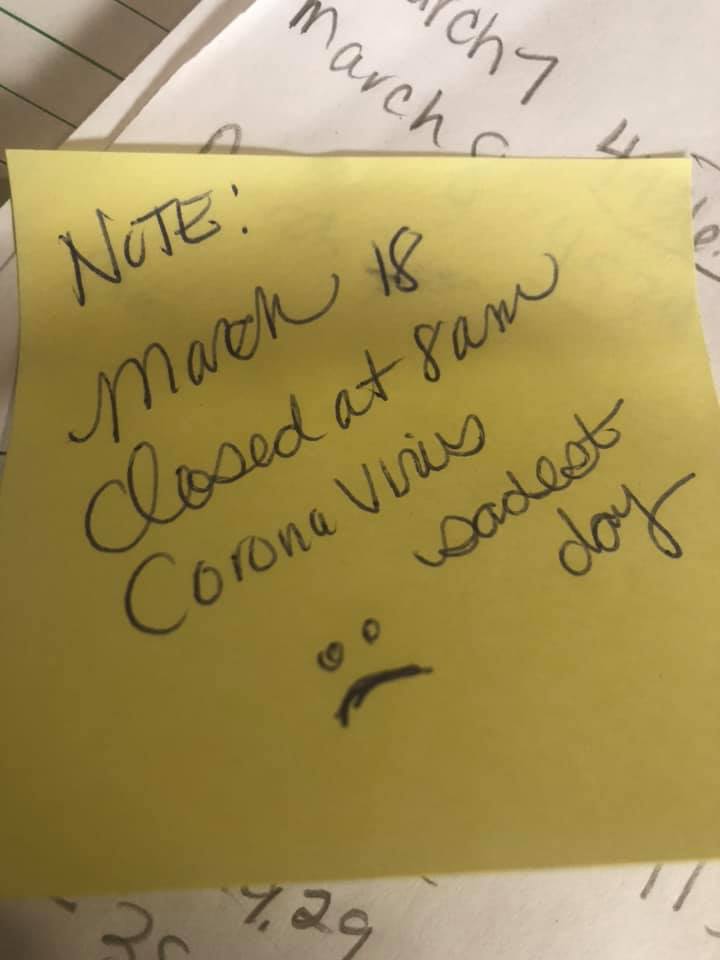 arch 7
march
NOTE:
March 18
Closed at 8am
Corona Virus
sadest
day
7.29